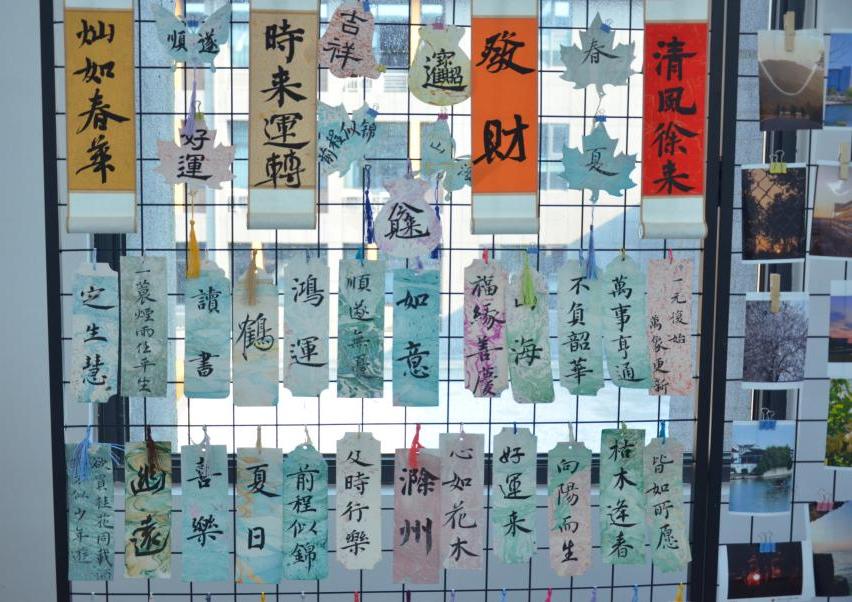 灿如春華
順遂
好運
時来運轉
吉祥
前程似錦
發財
春
夏
清風徐来
定生慧
一蓑煙雨任平生
讀書
鶴
鴻運
順遂無憂
如意
福緣善慶
山海
不負韶華
萬事亨通
一元復始
萬象更新
欲買桂花同載
似少年遊
幽遠
善樂
夏日
前程似錦
及時行樂
滁州
心如花木
好運来
向陽而生
枯木逢春
皆如所愿